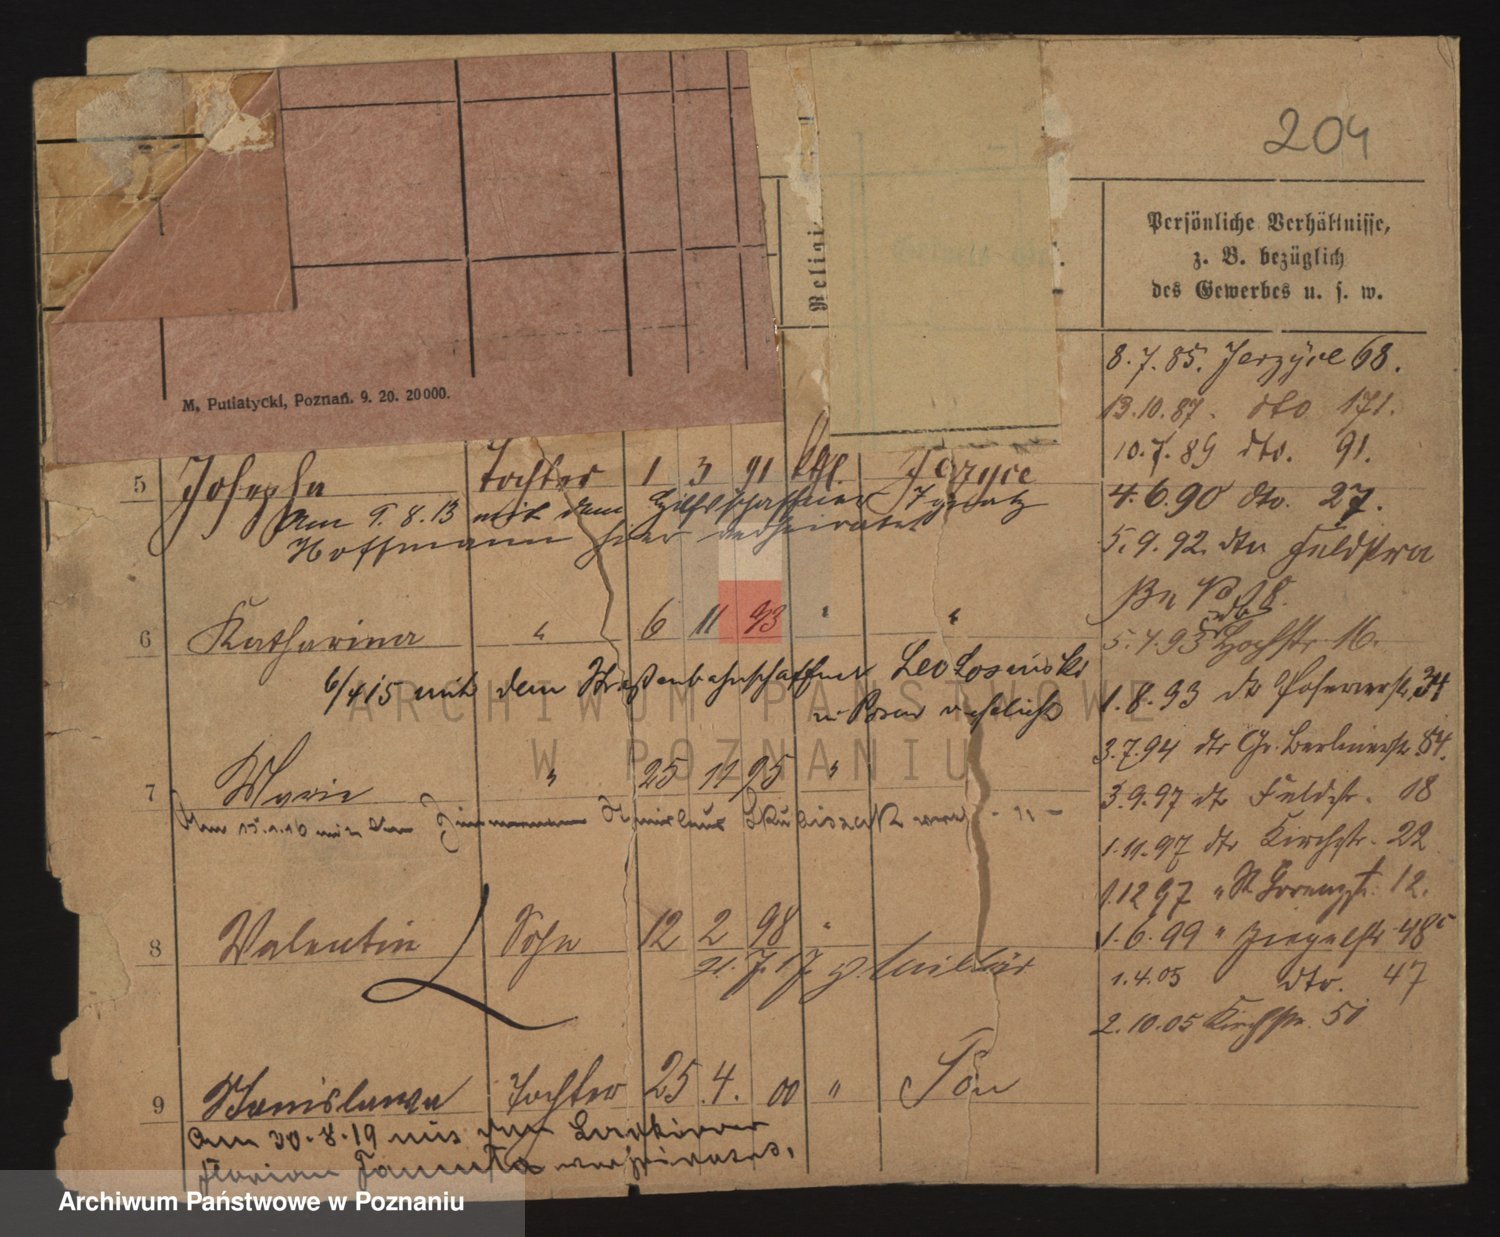 204
Religi
Persönliche Verhältnisse,
z. B. bezüglich
des Gewerbes u. s. w.
M. Putiatycki, Poznań. 9. 20. 20000.
8. 7. 85. Jerzyce 68.
13. 10. 87. dto 171.
10. 7. 89 dto. 91.
4. 6. 90 dto. 27.
5. 9. 92. dto Feldstra
ße 18.
5. 4. 93 Hochstr. 16.
1. 8. 93 dto Posenerstr. 34
3. 7. 94 dto Gr. Berlinerstr. 84.
3. 9. 97 dto Feldstr. 18
1. 11. 97 dto Kirchstr. 22
1. 12 97 " St Lorenzstr. 12.
1. 6. 99 " Ziegelstr 48c
1. 4. 05 dto. 47
2. 10. 05 Kirchstr. 51
5 Josepha Tochter 1 3 91 kth. Jerzyce
Am 9. 8. 13 mit dem Hilfsschaffner Ignatz
Hoffmann hier verheiratet
6 Katharina " 6 11 93 " "
6/4 15 mit dem Straßenbahnschaffner Leo Losinski
in Posen verehelicht
7 Marie " 25 11 95 "
Am 15. 1. 16 mit dem Zimmermann Stanislaus - " -
8 Valentin Sohn 12 2 98 "
21. 7. 17 z. Militär
9 Stanislawa Tochter 25. 4. 00 " Posen
Am 30. 8. 19 mit dem
Florian verheiratet.
ARCHIWUM PAŃSTWOWE
W POZNANIU
Archiwum Państwowe w Poznaniu